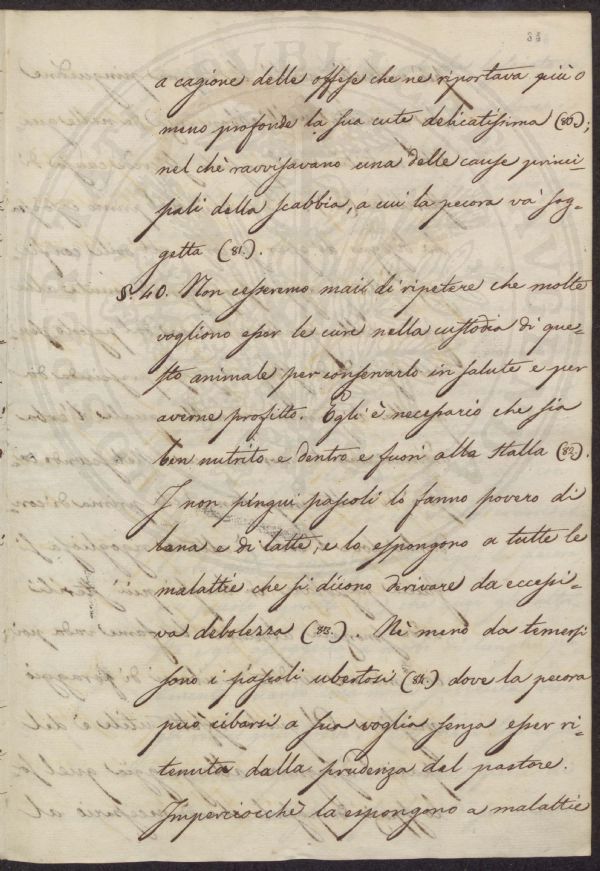 34
a cagione delle offese che ne riportava più o
meno profonde la sua cute delicatissima (80.);
nel chè ravvisavano una delle cause princi-
pali della scabbia, a cui la pecora và sog-
getta (81.).
§. 40. Non cesseremo mai di ripetere che molte
vogliono esser le cure nella custodia di que-
sto animale per conservarlo in salute e per
averne profitto. Egli è necessario che sia
ben nutrito e dentro e fuori alla stalla (82.).
I non pingui pascoli lo fanno povero di
lana e di latte, e lo espongono a tutte le
malattie che si dicono derivare da eccessi-
va debolezza (83.). Nè meno da temersi
sono i pascoli ubertosi (84.) dove la pecora
può cibarsi a sua voglia senza esser ri-
tenuta dalla prudenza del pastore.
Imperciocchè la espongono a malattie